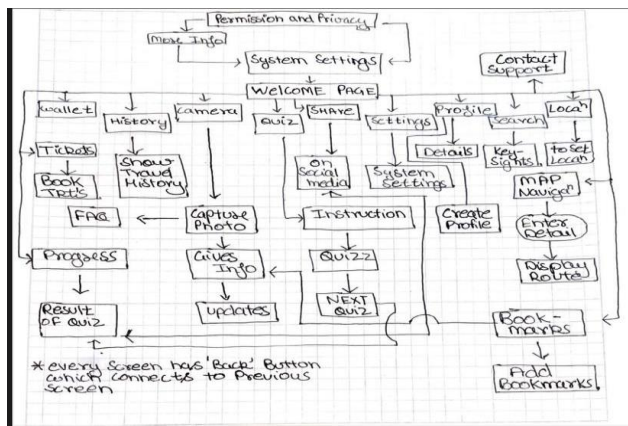 Permission and Privacy
More Info
System Settings
WELCOME PAGE
Contact
Support
Wallet
History
Camera
QUIZ
SHARE
Settings
Profile
Search
Locaⁿ
Tickets
Book
TKTS
Show
Travel
History
on
Social
media
System
Settings
Details
Key-
Sights
to Set
Locaⁿ
MAP
Navigⁿ
FAQ
Capture
Photo
Instruction
Create
Profile
Enter
Detail
Progress
Gives
Info
QUIZZ
Display
Route
Result
OF QUIZ
updates
NEXT
QUIZ
Book-
marks
Add
Bookmarks
* every screen has 'Back' Button
which connects to Previous
screen